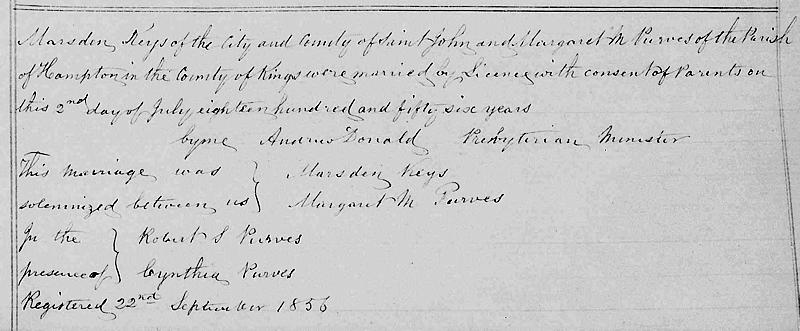 Marsden Keys of the City and County of Saint John and Margaret M Purves of the Parish
of Hampton in the County of Kings were married by Licence with consent of Parents on
this 2nd day of July eighteen hundred and fifty six years
by me Andrew Donald Presbyterian Minister
This marriage was } Marsden Keys
solemnized between us } Margaret M Purves
In the } Robert S Purves
presence of } Cynthia Purves
Registered 22nd September 1856